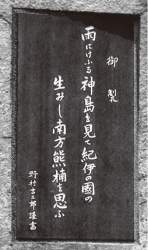 御製
雨にけふる神島を見て紀伊の國の
生みし南方熊楠を思ふ
野村吉三郎謹書